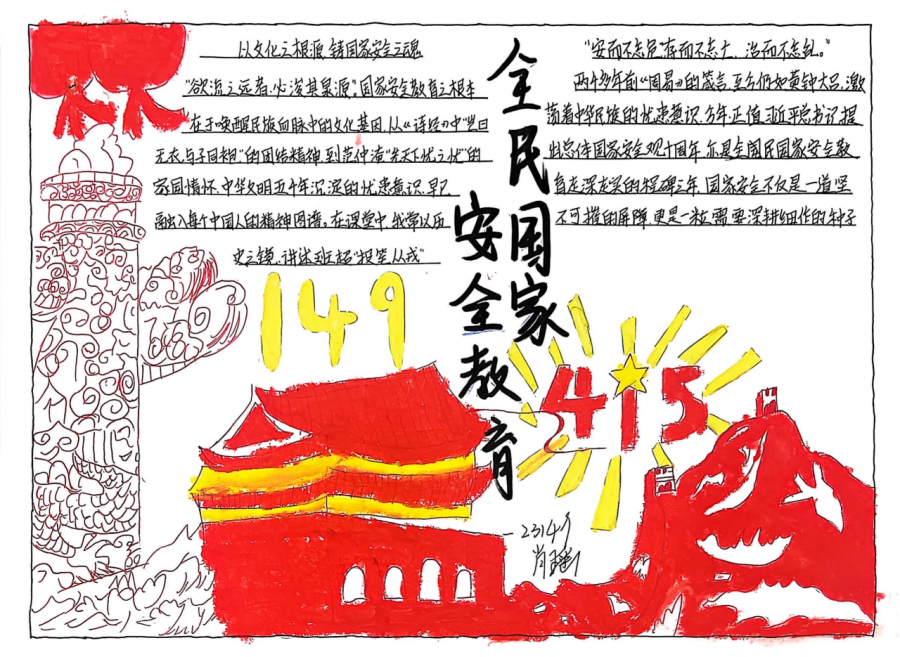 以文化之根源,铸国家安全之魂
"欲流之远者,必浚其泉源"。国家安全教育之根本
在于唤醒民族血脉中的文化基因,从《诗经》中"岂曰
无衣,与子同袍"的团结精神,到范仲淹"先天下忧之忧"的
家国情怀,中华文明五千年沉淀的忧患意识,早已
融入每个中国人的精神图谱。在课堂中,我常以历
史之镜,讲述班超"投笔从戎"
全民国家
安全教育
"安而不忘危,存而不忘亡,治而不忘乱。"
两千多年前《周易》的箴言,至今仍如黄钟大吕,激
荡着中华民族的忧患意识,今年正值习近平总书记提
出总体国家安全观十周年,亦是全国民国家安全教
育走深走实的 三年,国家安全不仅是一道坚
不可摧的屏障,更是一粒需要深耕细作的种子
149
4 15
2314
肖